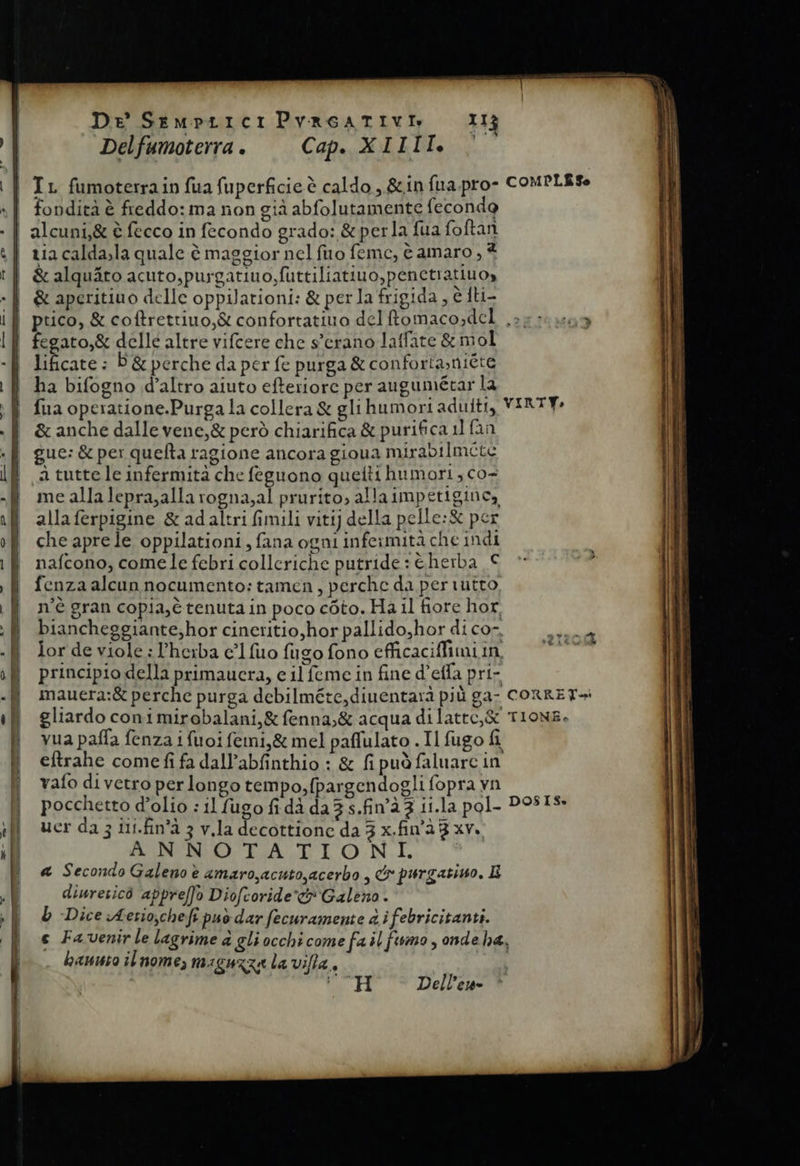 De' Semplici Pvrgativi. 113
Del fumoterra. Cap. XIIII.
Il fumoterra in ſua ſuperficie è caldo, & in ſua pro- COMPLESſ.
fondità è freddo: ma non già abſolutamente ſecondo
alcuni,& è ſecco in ſecondo grado: & per la ſua ſoſtan
tia calda,la quale è maggior nel ſuo ſeme, è amaro, a
& alquãto acuto,purgatiuo,ſuttiliatiuo,penetratiuo,
& aperitiuo delle oppilationi: & per la frigida, è ſti-
ptico, & coſtrettiuo,& confortatiuo del ſtomaco,del
fegato,& delle altre viſcere che s'erano laſſate & mol
lificate: b & perche da per ſe purga & conforta,niẽte
ha biſogno d'altro aiuto eſteriore per augumẽtar la
ſua operatione.Purga la collera & gli humori aduſti, VIRTV.
& anche dalle vene,& però chiarifica & purifica il ſan
gue: & per queſta ragione ancora gioua mirabilmẽte
à tutte le infermità che ſeguono queſti humori, co-
me alla lepra,alla rogna,al prurito, alla impetigine,
alla ſerpigine & ad altri ſimili vitij della pelle:& per
che apre le oppilationi, ſana ogni infermità che indi
naſcono, come le febri colleriche putride: è herba c
ſenza alcun nocumento: tamen, perche da per tutto
n'è gran copia,è tenuta in poco cõto. Ha il fiore hor
biancheggiante,hor cineritio,hor pallido,hor di co-
lor de viole: l'herba e'l ſuo ſugo ſono efficaciſſimi in
principio della primauera, e il ſeme in fine d'eſſa pri-
mauera:& perche purga debilmẽte,diuentarà più ga- CORRET-
gliardo con i mirobalani,& ſenna,& acqua di latte,& TIONE.
vua paſſa ſenza i ſuoi ſemi,& mel paſſulato. Il ſugo ſi
eſtrahe come ſi fa dall'abſinthio: & ſi può ſaluare in
vaſo di vetro per longo tempo,ſpargendogli ſopra vn
pocchetto d'olio: il ſugo ſi dà da ℥ s.fin'à ℥ ii.la pol- DOSIS.
uer da ʒ iii.fin'à ʒ v.la decottione da ℥ x.fin'à ℥ xv.
ANNOTATIONI.
a Secondo Galeno è amaro,acuto,acerbo, & purgatiuo. E
diureticò appreſſo Dioſcoride & Galeno.
b Dice Aetio,che ſi può dar ſecuramente à i febricitanti.
c Fa venir le lagrime à gli occhi come fa il fumo, onde ha,
hauuto il nome, maguzza la viſta.
H Dell'eu-